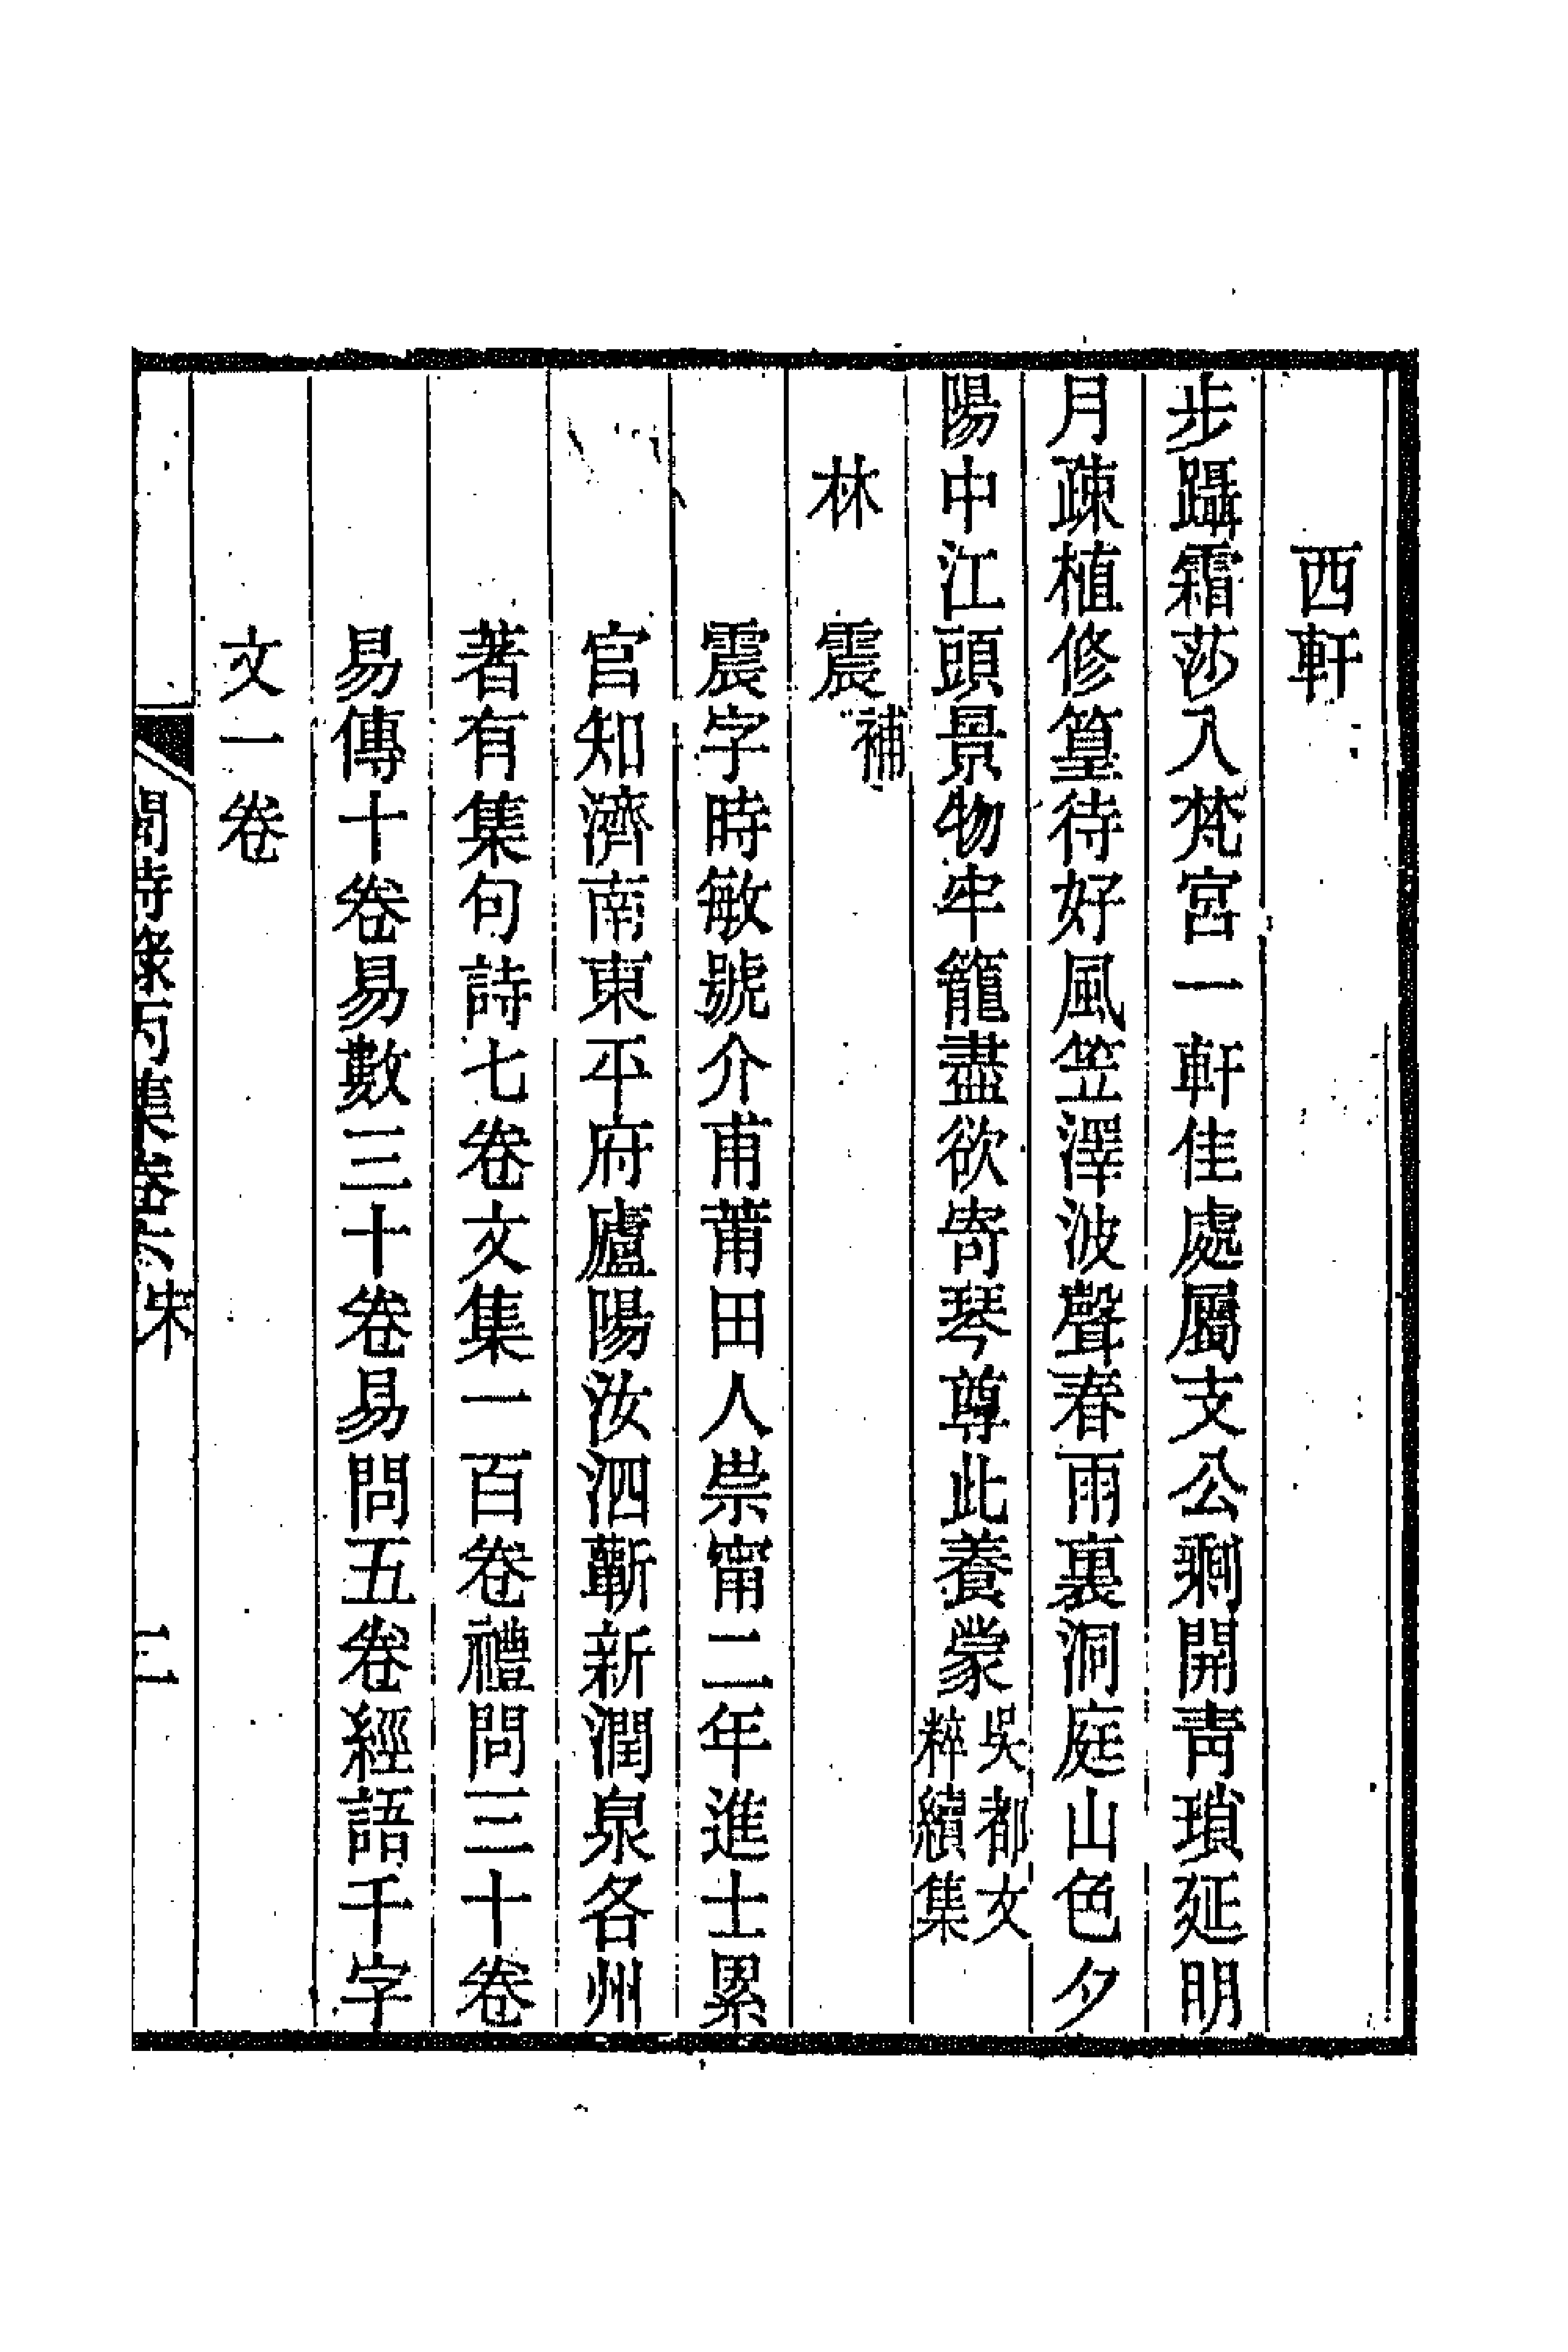 西軒
步躡霜莎入梵宮一軒佳處屬支公剩開靑瑣延明
月疎植修篁待好風笠澤波聲春雨裏洞庭山色夕
陽中江頭景物牢籠盡欲寄琴尊此養蒙吳都文粹續集
林震補
震字時敏號介甫莆田人崇甯二年進士累
官知濟南東平府廬陽汝泗蘄新潤泉各州
著有集句詩七卷文集一百卷禮問三十卷
易傳十卷易數三十卷易問五卷經語千字
文一卷
閩詩錄丙集卷六宋
二